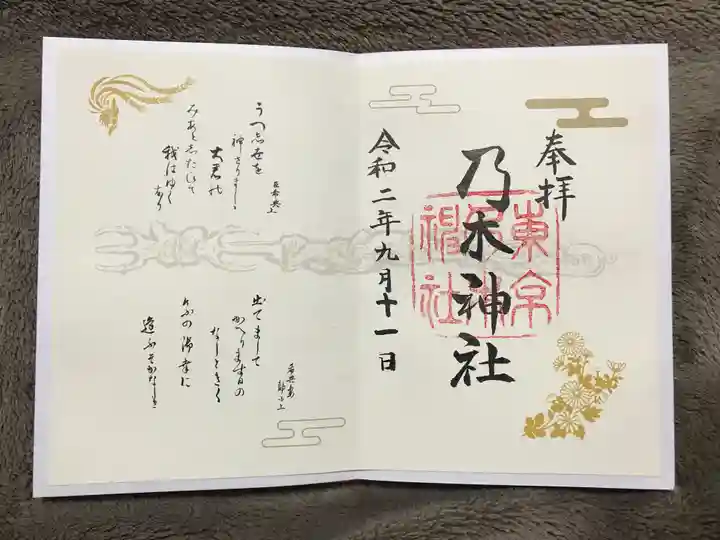 奉拝
乃木神社
東京
乃木
神社
令和二年九月十一日
臣希典上
うつ志世を
神さりましゝ
大君の
みあと志たひて
我はゆく
なり
希典妻
静子上
出てまして
かへります日の
なしときく
けふの御幸に
逢ふそかなしき